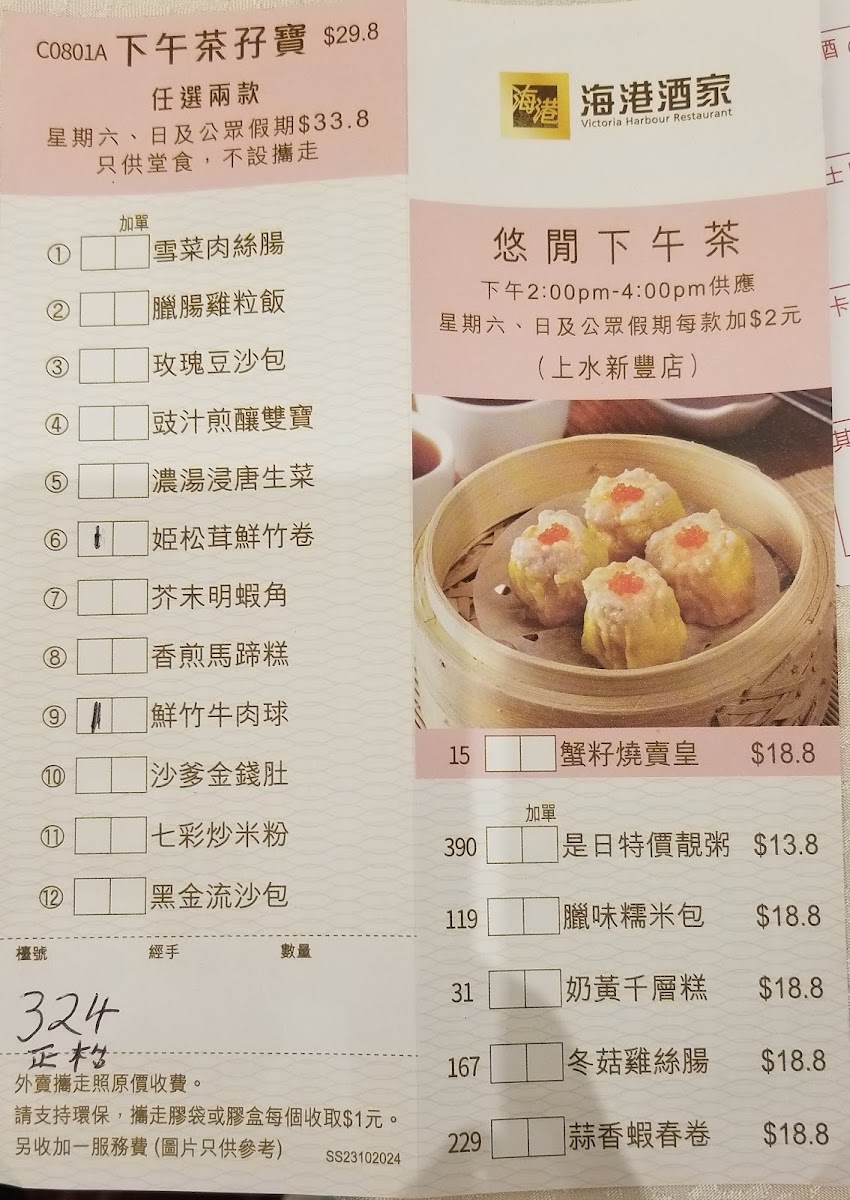 C0801A 下午茶孖寶 $29.8
任選兩款
星期六、日及公眾假期$33.8
只供堂食，不設攜走
加單
① 雪菜肉絲腸
② 臘腸雞粒飯
③ 玫瑰豆沙包
④ 豉汁煎釀雙寶
⑤ 濃湯浸唐生菜
⑥ 姬松茸鮮竹卷
⑦ 芥末明蝦角
⑧ 香煎馬蹄糕
⑨ 鮮竹牛肉球
⑩ 沙爹金錢肚
⑪ 七彩炒米粉
⑫ 黑金流沙包
檯號 經手 數量
324
外賣攜走照原價收費。
請支持環保，攜走膠袋或膠盒每個收取$1元。
另收加一服務費 (圖片只供參考) SS23102024
海港
海港酒家
Victoria Harbour Restaurant
悠閒下午茶
下午2:00pm-4:00pm供應
星期六、日及公眾假期每款加$2元
（上水新豐店）
15 蟹籽燒賣皇 $18.8
加單
390 是日特價靚粥 $13.8
119 臘味糯米包 $18.8
31 奶黃千層糕 $18.8
167 冬菇雞絲腸 $18.8
229 蒜香蝦春卷 $18.8
酒
士
卡
其